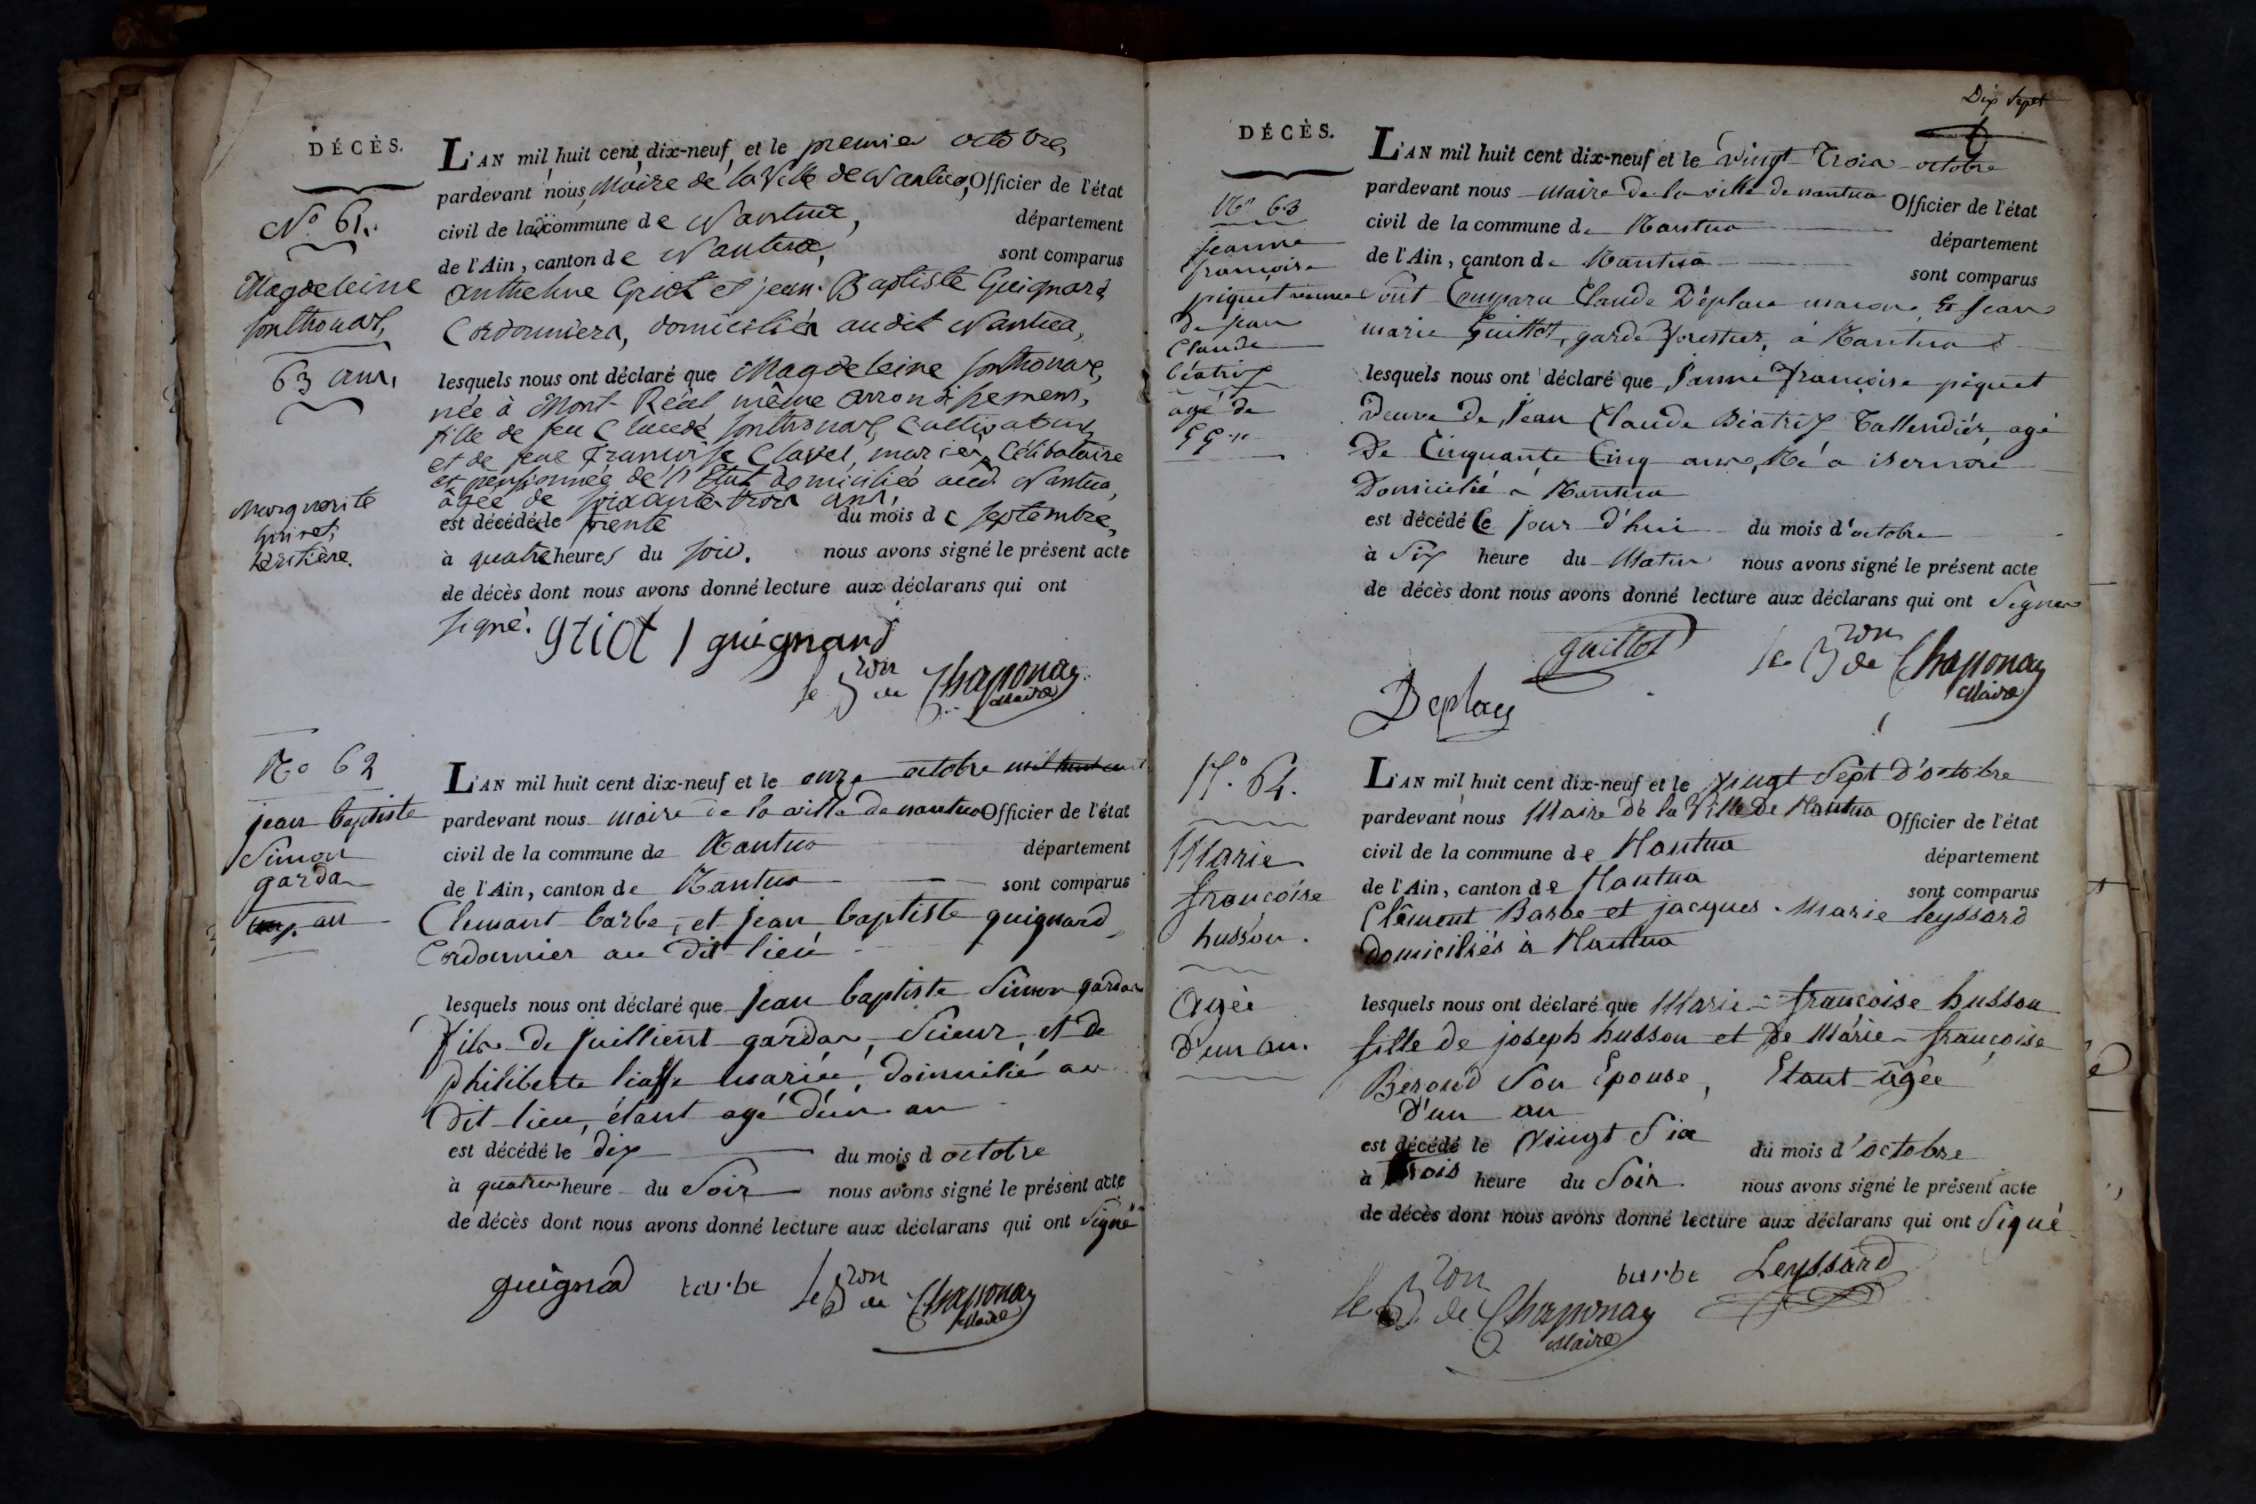 DÉCÈS.
N.º 61.
Magdeleine
Sonthonax,
63 ans,
Marguerite
héritière.
L'AN mil huit cent dix-neuf et le premier octobre,
pardevant nous, Maire de la Ville de Nantua, Officier de l'état
civil de la commune de Nantua, département
de l'Ain, canton de Nantua, sont comparus
Anthelme Griot et jean-Baptiste Guignard,
Cordonniers, domiciliés audit Nantua,
lesquels nous ont déclaré que Magdeleine Sonthonax,
née à Mont-Réal même arrondissement,
fille de feu Claude Sonthonax, Cultivateur,
et de feue Françoise mariés, Célibataire
et pensionnée de l'Etat domiciliée aud. Nantua,
âgée de soixante trois ans,
est décédée le trente du mois de septembre,
à quatre heures du soir. nous avons signé le présent acte
de décès dont nous avons donné lecture aux déclarans qui ont
signé. griot J guignard
le Bron de Chaponay
Maire
No 62
jean baptiste
Simon
gardan
un an
L'AN mil huit cent dix-neuf et le onze octobre mil huit cent
pardevant nous maire de la ville de nantua Officier de l'état
civil de la commune de Nantua département
de l'Ain, canton de Nantua sont comparus
Clemant barbe, et jean baptiste guignard
Cordonnier au dit lieu
lesquels nous ont déclaré que jean baptiste Simon gardan
fils de juillient gardan, Scieur, et de
philiberte mariée, domicilié au
dit lieu, étant agé d'un an
est décédé le dix du mois d octobre
à quatre heure du Soir nous avons signé le présent acte
de décès dont nous avons donné lecture aux déclarans qui ont Signé
guignard barbe le Bron de Chaponay
Maire
Dix Sept
DÉCÈS.
No 63
jeanne
françoise
piquet veuve
de jean
Claude
béatrix
agé de
55 ans
L'AN mil huit cent dix-neuf et le vingt Trois octobre
pardevant nous maire de la ville de nantua Officier de l'état
civil de la commune de Nantua département
de l'Ain, canton de Nantua sont comparus
Sont Comparu Claude Déplace maçon, Et jean
marie Guillot, garde forestier, à Nantua
lesquels nous ont déclaré que Janne françoise piquet
veuve de Jean Claude Béatrix Tallendiér, agé
De Cinquante Cinq ans, Né a isernore
Domicilié à Nantua
est décédé Ce jour d'hui du mois d'octobre
à Six heure du Matin nous avons signé le présent acte
de décès dont nous avons donné lecture aux déclarans qui ont Signer
guillot le Bron de Chaponay
Maire
Deplace
N.º 64.
Marie
françoise
husson.
Agée
d'un an.
L'AN mil huit cent dix-neuf et le vingt Sept d'octobre
pardevant nous Maire de la Ville De Nantua Officier de l'état
civil de la commune de Nantua département
de l'Ain, canton de Nantua sont comparus
Clément Barbe et jacques-Marie leyssard
domiciliés à Nantua
lesquels nous ont déclaré que Marie-françoise husson
fille de joseph husson et De Marie-françoise
Beroud Son Epouse, Etant âgée
d'un an
est décédé le vingt Six du mois d'octobre
à trois heure du Soir. nous avons signé le présent acte
de décès dont nous avons donné lecture aux déclarans qui ont Signé
barbe Leyssard
le Bron de Chaponay
Maire